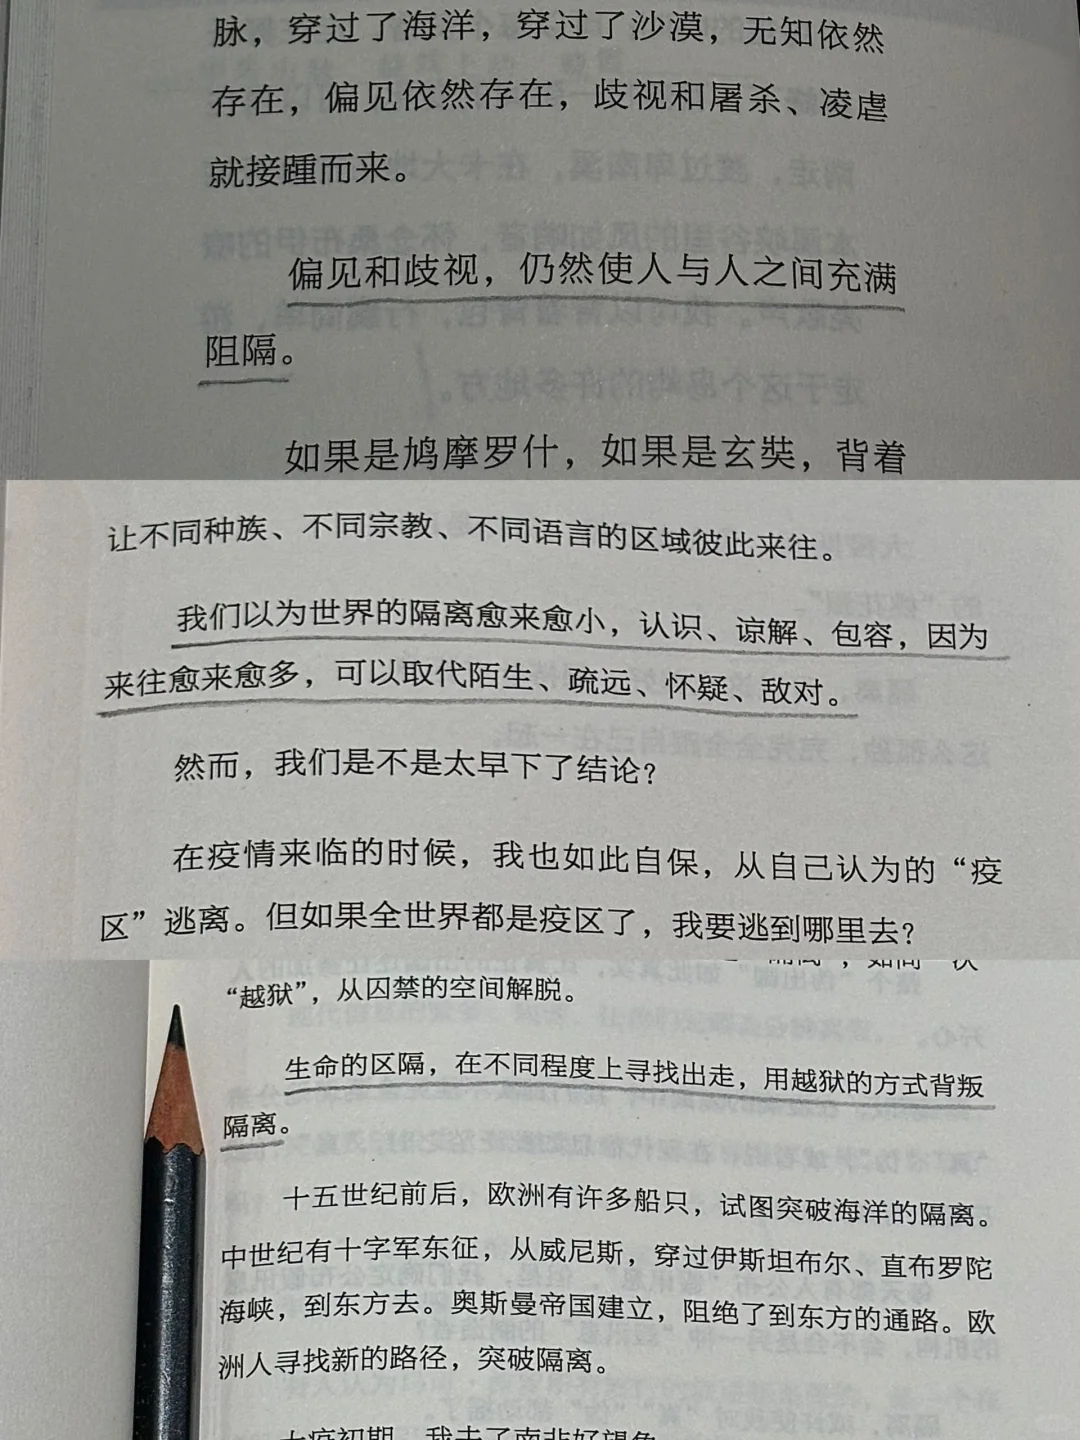 脉，穿过了海洋，穿过了沙漠，无知依然
存在，偏见依然存在，歧视和屠杀、凌虐
就接踵而来。
偏见和歧视，仍然使人与人之间充满
阻隔。
如果是鸠摩罗什，如果是玄奘，背着
让不同种族、不同宗教、不同语言的区域彼此来往。
我们以为世界的隔离愈来愈小，认识、谅解、包容，因为
来往愈来愈多，可以取代陌生、疏远、怀疑、敌对。
然而，我们是不是太早下了结论？
在疫情来临的时候，我也如此自保，从自己认为的“疫
区”逃离。但如果全世界都是疫区了，我要逃到哪里去？
“越狱”，从囚禁的空间解脱。
生命的区隔，在不同程度上寻找出走，用越狱的方式背叛
隔离。
十五世纪前后，欧洲有许多船只，试图突破海洋的隔离。
中世纪有十字军东征，从威尼斯，穿过伊斯坦布尔、直布罗陀
海峡，到东方去。奥斯曼帝国建立，阻绝了到东方的通路。欧
洲人寻找新的路径，突破隔离。
大疫初期，我去了南非好望角